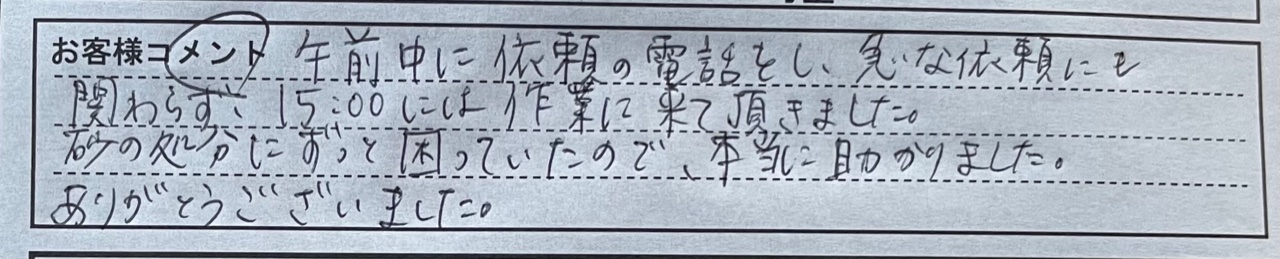 お客様コメント 午前中に依頼の電話をし、急な依頼にも
関わらず、15:00には作業に来て頂きました。
砂の処分にずっと困っていたので、本当に助かりました。
ありがとうございました。